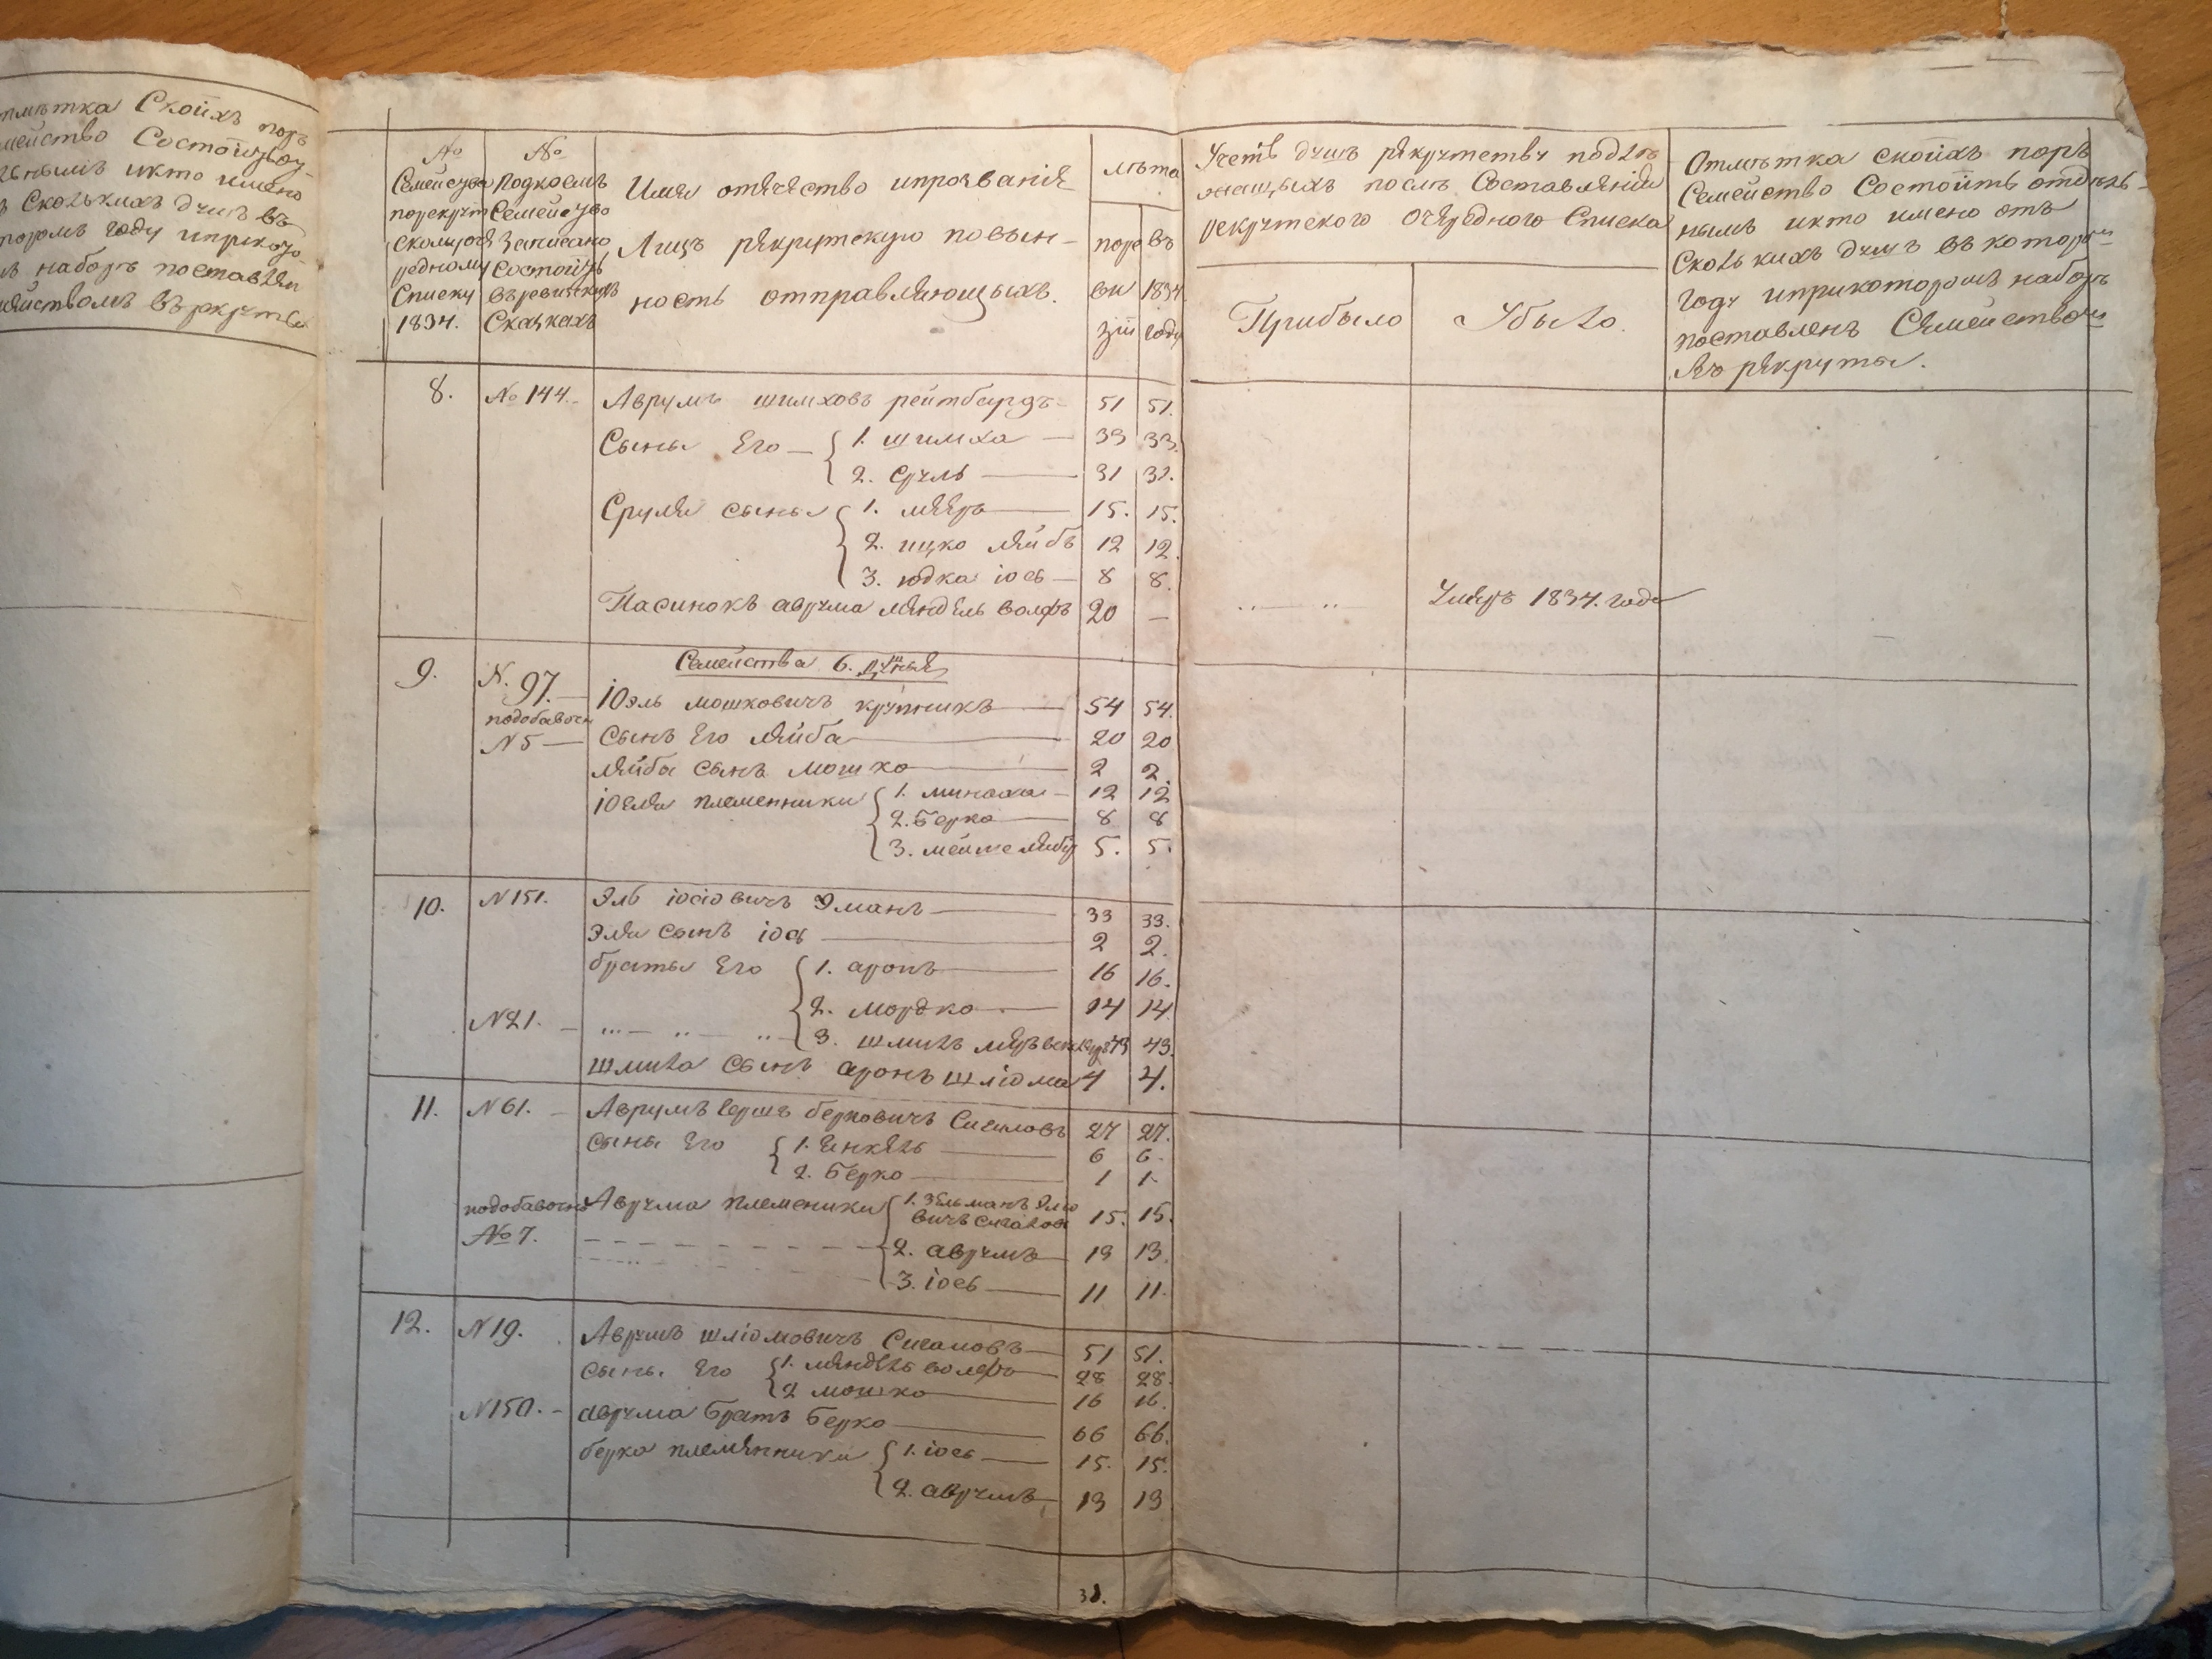 Скоихъ поръ
Состоитъ
икто имено
Сколькихъ душъ въ
году
наборъ поставлен
№
Семейства
порекрут
сколко оче
редному
Списку
1834.
№
Подкоемъ
Семейство
Записано
Состоитъ
въревижскихъ
Сказкахъ
Имя отечество ипрозвание
Лицъ рекрутскую повин-
ность отправляющихъ.
лѣта
поре
ви
зіи
въ
1834
году
душъ рекрутству
после Составленія
рекрутского очередного Списка
Прибыло
Убыло.
Отмѣтка скоихъ поръ
Семейство Состоитъ отдѣль-
нымъ икто имено отъ
Сколькихъ душъ въ котором
году иприкоторомъ наборѣ
поставленъ Семейством
въ рекруты.
8. № 144. Аврумъ шимховъ рейтбардъ 51 51.
Сыны Его 1. шимха 33 33.
2. Сруль 31 31.
Сруля сыны 1. меерь 15. 15.
2. ицко лейбъ 12 12.
3. юдка іось 8 8.
Пасинокъ аврума мендель волфъ 20 — Умеръ 1834. года
Семейства 6. душныя
9. N. 97. Юэль мошковичъ крупникъ 54 54.
подобавочн
N 5 Сынъ Его лейба 20 20
лейбы сынъ мошко 2 2.
іоеля племенники 1. минаха 12 12
2. Берко 8 8
3. 5. 5.
10. N 151. Эль іосіовичъ Эманъ 33 33.
эля сынъ іось 2 2.
браты Его 1. аронъ 16 16.
2. мордко 14 14
N 21. 3. шмиль 43.
шмиля сынъ аронъ шліома 4 4.
11. N 61. Аврумъ гершъ берковичъ Сигаловъ 27 27.
сыны Его 1. Енкель 6 6.
2. Берко 1 1.
подобавочно Аврума племеники 1. Зельманъ Эліо
вичъ сигалов 15. 15.
№ 7. 2. аврумъ 13 13.
3. іось 11 11.
12. N 19. Аврумъ шліомовичъ Сигаловъ 51 51.
сыны Его 1. мендель волфъ 28 28.
2 мошко 16 16.
N 150. аврума братъ Берко 66 66.
берка племянники 1. іось 15. 15.
2. аврумъ 13 13
31.